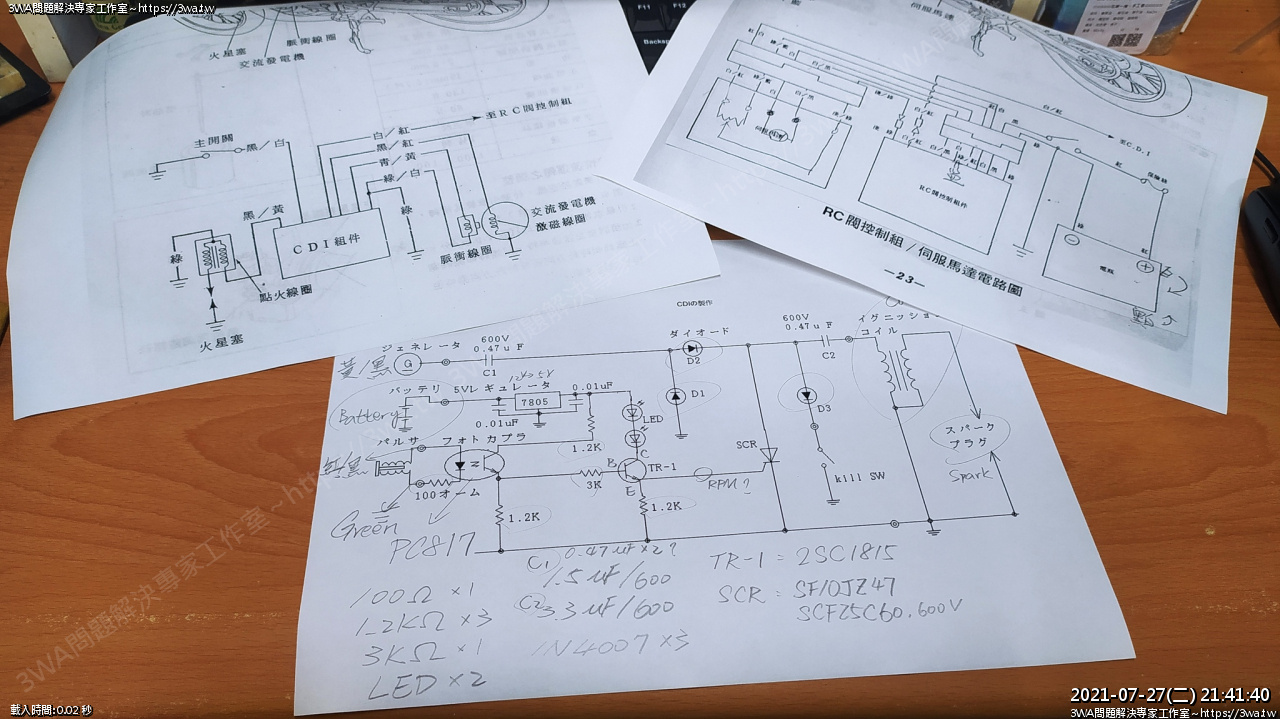 3WA問題解決專家工作室~https://3wa.tw
火星塞
脈衝線圈
交流發電機
主開關
黑／白
白／紅
至RC閥控制組
黑／紅
青／黃
綠／白
黑／黃
綠
綠
CDI組件
交流發電機
激磁線圈
脈衝線圈
點火線圈
火星塞
F11
F12
Backsp
伺服馬達
白／紅
至C.D.I
保險絲
紅
綠
黑
RC閥控制組件
綠
紅
電瓶
RC閥控制組／伺服馬達電路圖
—23—
CDIの製作
ジェネレータ
600V
0.47uF
C1
黃/黑
G
ダイオード
D2
600V
0.47uF
C2
イグニッション
コイル
バッテリ
5Vレギュレータ
12V→5V
7805
0.01uF
0.01uF
LED
D1
D3
Battery
パルサ
フォトカプラ
1.2K
SCR
スパーク
プラグ
Spark
紅/黑
100オーム
3K
B
C
E
TR-1
RPM?
kill SW
1.2K
1.2K
Green
PC817
C1 0.47uF×2?
1.5uF/600
C2 3.3uF/600
1N4007×3
TR-1 = 2SC1815
SCR : SF10JZ47
SCF25C60.600V
100Ω ×1
1.2KΩ ×3
3KΩ ×1
LED×2
3WA問題解決專家工作室 ~https://3wa.tw
2021-07-27(二) 21:41:40
載入時間:0.02 秒
3WA問題解決專家工作室~https://3wa.tw